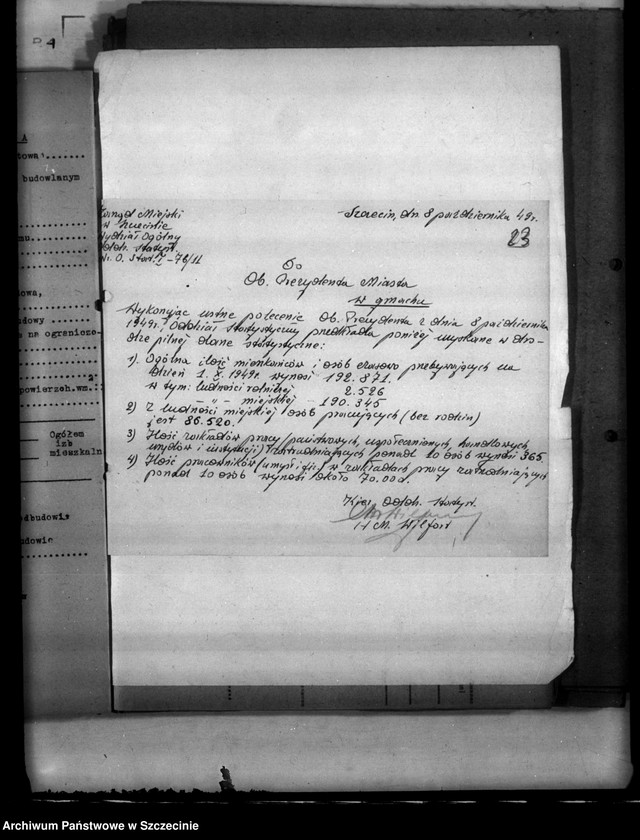 A
towa.......
budowlanym
mu....
owa,
udowy
e na ogranicze-
2
powierzch.ws.:
Ogółem
izb
mieszkaln
odbudowie
udowie
Zarząd Miejski
w Szczecinie
Wydział Ogólny
Oddz. Statyst.
Nr. O. Stat. I - 76/1L
Szczecin, dn 8 października 49r.
23
Do
Ob. Prezydenta Miasta
w gmachu
Wykonując ustne polecenie Ob. Prezydenta z dnia 8 października
1949r. Oddział Statystyczny przedkłada poniżej uzyskane w dro-
dze pilnej dane statystyczne:
1). Ogólna ilość mieszkańców i osób czasowo przebywających na
dzień 1. X. 1949r. wynosi 192.871.
w tym: ludności rolniczej 2.526
- " - miejskiej 190.345
2) Z ludności miejskiej osób pracujących (bez rodzin)
jest 86.520.
3) Ilość zakładów pracy (państwowych, uspołecznionych, handlowych
urzędów i instytucji) zatrudniających ponad 10 osób wynosi 365.
4) Ilość pracowników (umysł i fiz.) w zakładach pracy zatrudniających
ponad 10 osób wynosi około 70.000.
Kier. Oddz. Statyst.
H M. Wilfort
Archiwum Państwowe w Szczecinie